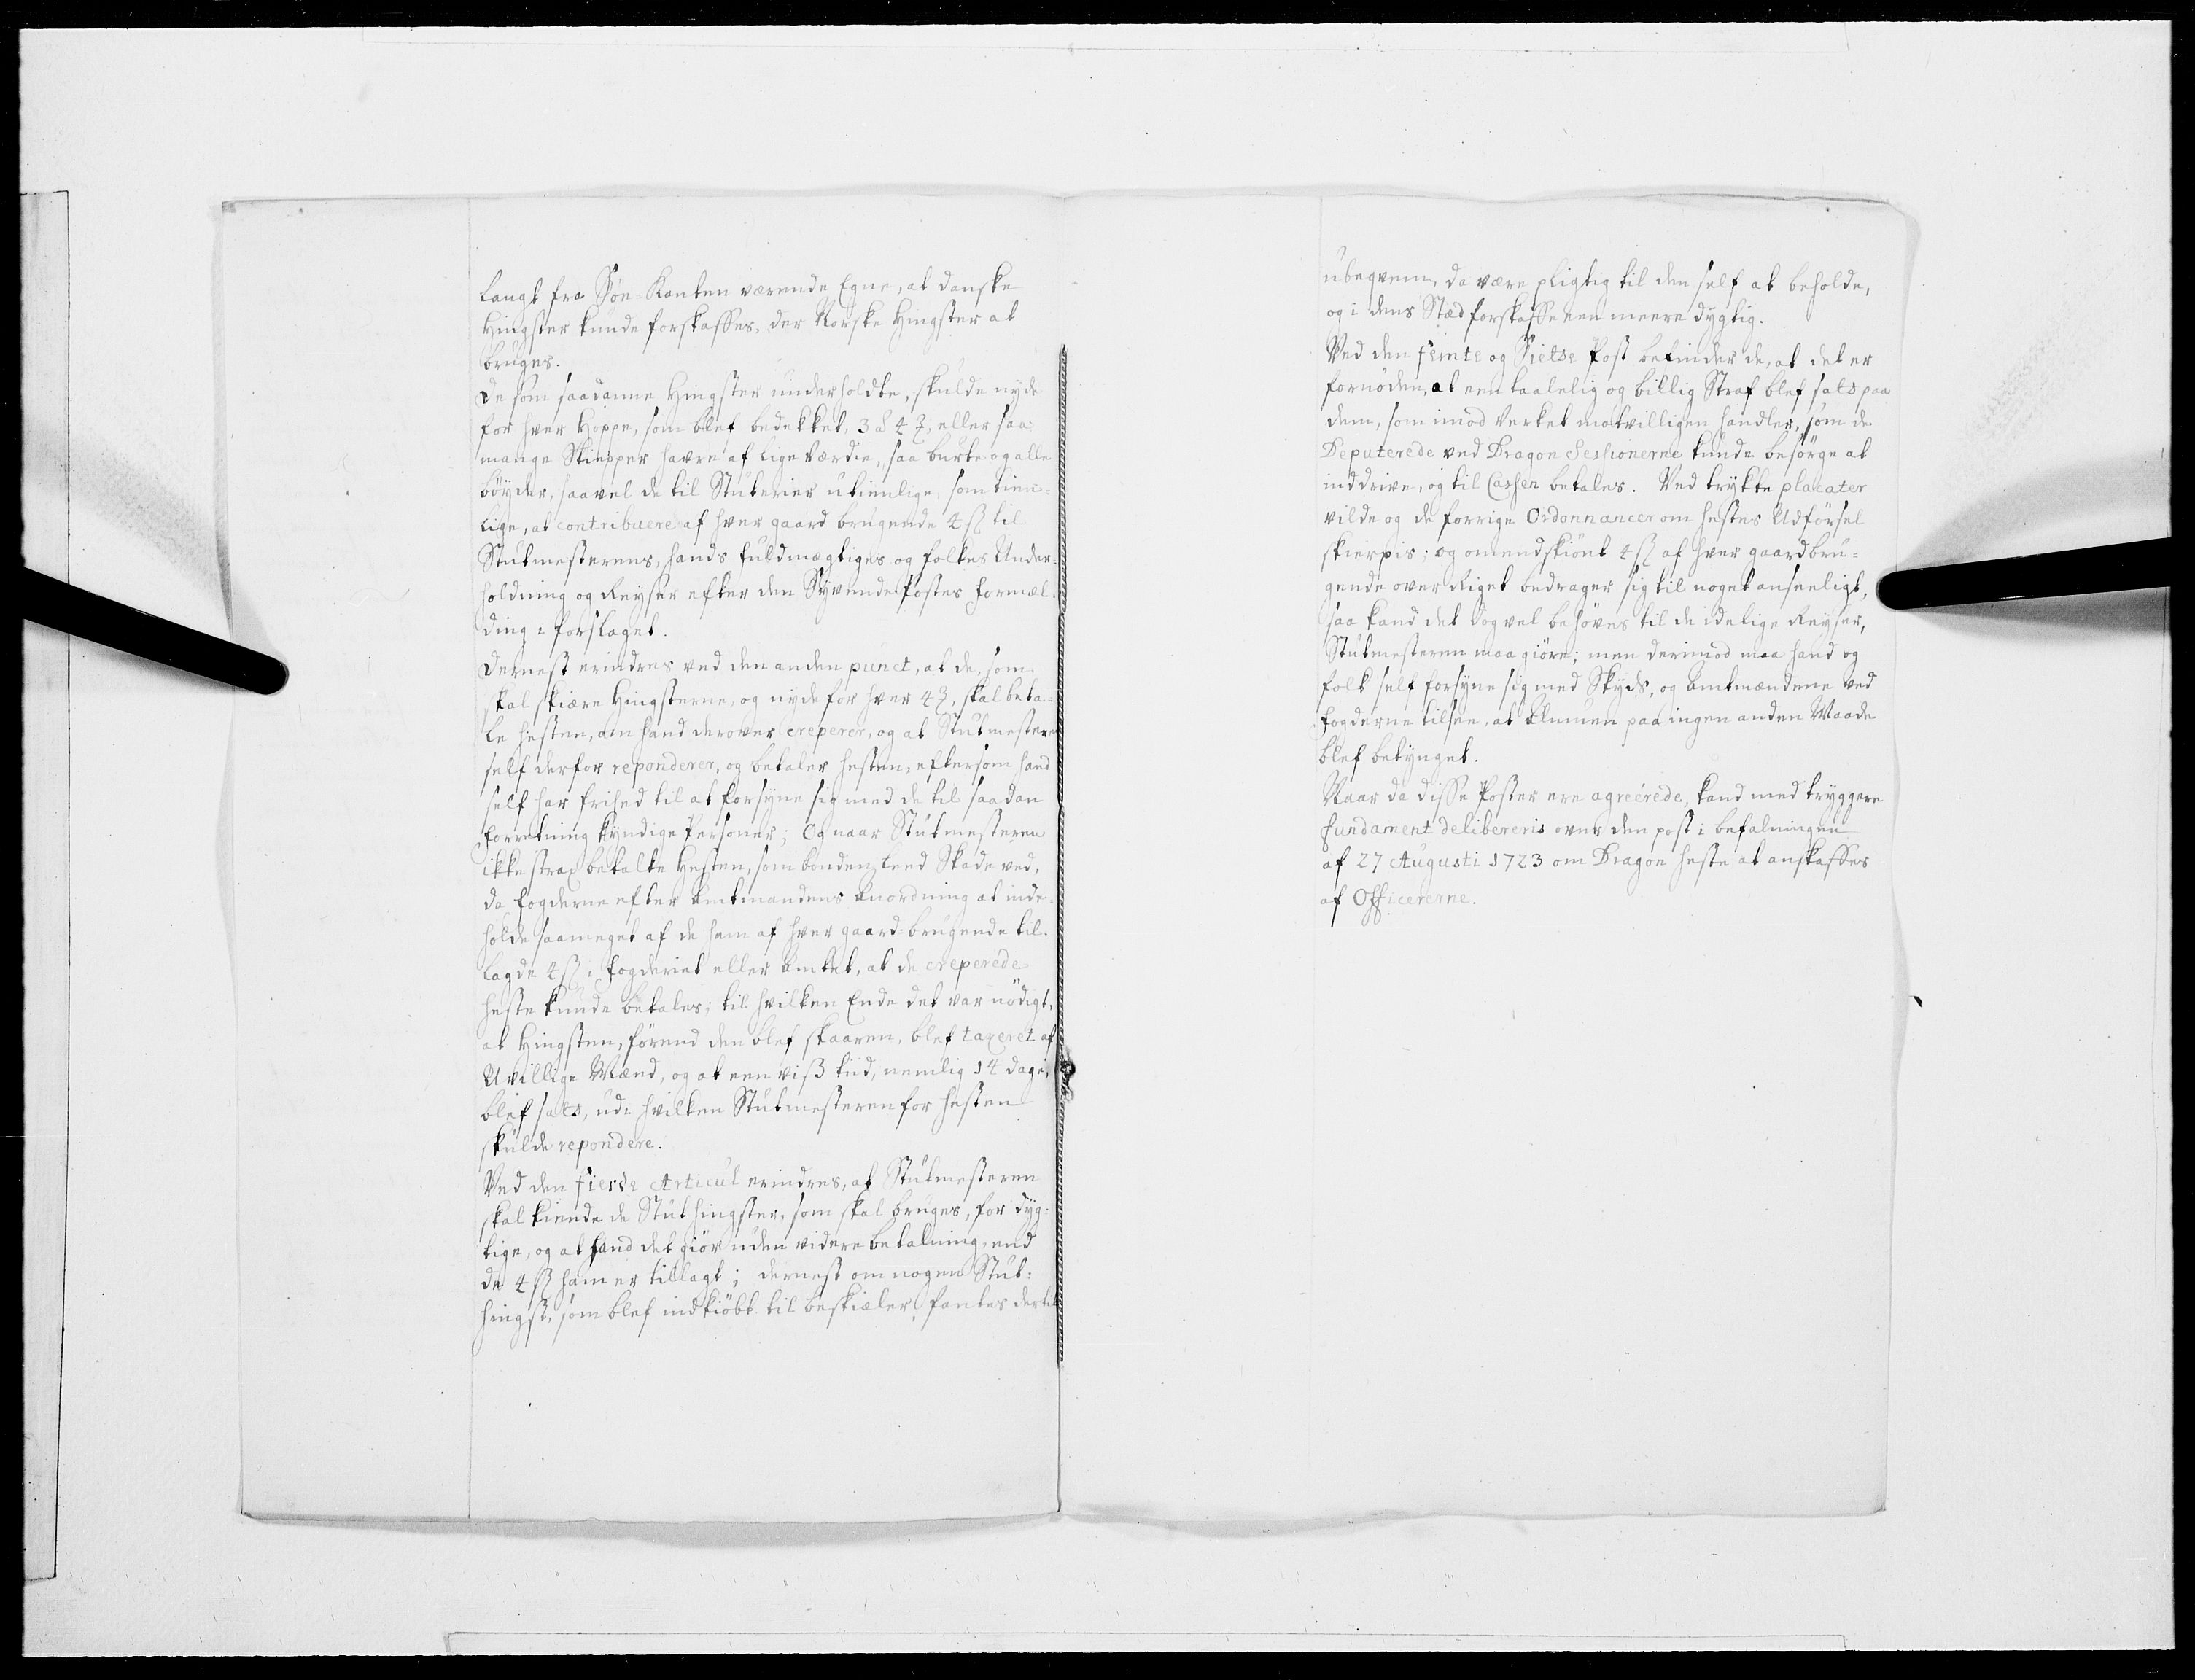 langt fra Söe-Kanten værende Egne, at danske
Hingster kunde forskaffes, der Norske Hingster at
bruges.
De som saadanne Hingster underholdte, skulde nyde
for hver Hoppe, som blef bedekket, 3 a 4 ℔, eller saa
mange Skiepper havre af lige Værdie, saa burte og alle
böyder, saavel de til Stuterier utienlige, som tien-
lige, at contribuere af hver gaard brugende 4 ß til
Stutmesterens, hands fuldmægtiges og folkes Under-
holdning og Reyser efter den Syvende Postes formel-
ding i forslaget.
Dernest erindres ved den anden punct, at de, som
skal skiære Hingsterne, og nyde for hver 4 ℔, skal beta-
le hesten, om hand derover creperer, og at Stutmesteren
self derfor reponderer, og betaler hesten, eftersom hand
self har frihed til at forsyne sig med de til saadan
forretning kyndige Personer; Og naar Stutmesteren
ikke strax betalte Hesten, som bonden leed Skade ved,
da fogderne efter Amtmandens Anordning at inde-
holde saameget af de ham af hver gaard-brugende til-
lagde 4 ß i fogderiet eller Amtet, at de creperede
heste kunde betales; til hvilken Ende det var nödigt,
at Hingsten, förend den blef skaaren, blef taxeret af
Uvillige Mænd, og at een viss tiid, nemlig 14 dage,
blef sats, udi hvilken Stutmesteren for hesten
skulde repondere.
Ved den fierde Articul erindres, at Stutmesteren
skal kiende de Stuthingster, som skal bruges, for dyg-
tige, og at hand det giör uden videre betalning, end
de 4 ß ham er tillagt; dernest om nogen Stut-
hingst, som blef indkiöbt til beskiæler, fantes dertil
ubeqvem, da være pligtig til den self at beholde,
og i dens Stæd forskaffe een meere dygtig.
Ved den femte og Siette Post befinder de, at det er
fornöden, at een taalelig og billig Straf blef sats paa
dem, som imod Verket motvilligen handler, som de
Deputerede ved Dragon Sessionerne kunde besörge at
inddrive, og til Cassen betales. Ved trykte placater
vilde og de forrige Ordonnancer om hestes Udförsel
skierpis; og omendskiönt 4 ß af hver gaardbru-
gende over Riget bedrager sig til noget anseeligt,
saa kand det dog vel behöves til de idelige Reyser,
Stutmesteren maa giöre; men derimod maa hand og
folk self forsyne sig med Skyds, og Amtmændene ved
fogderne tilsee, at Almuen paa ingen anden Maade
blef betynget.
Naar da disse Poster ere agreérede, kand med tryggere
fundament delibereris over den post i befalningen
af 27 Augusti 1723 om Dragon heste at anskaffes
af Officererne.